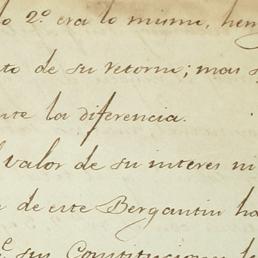 lo 2.º era lo mismo, hen
to de su retorno; mas
nte la diferencia.
l valor de su interes ni
de este Bergantin ha
su Constitucion